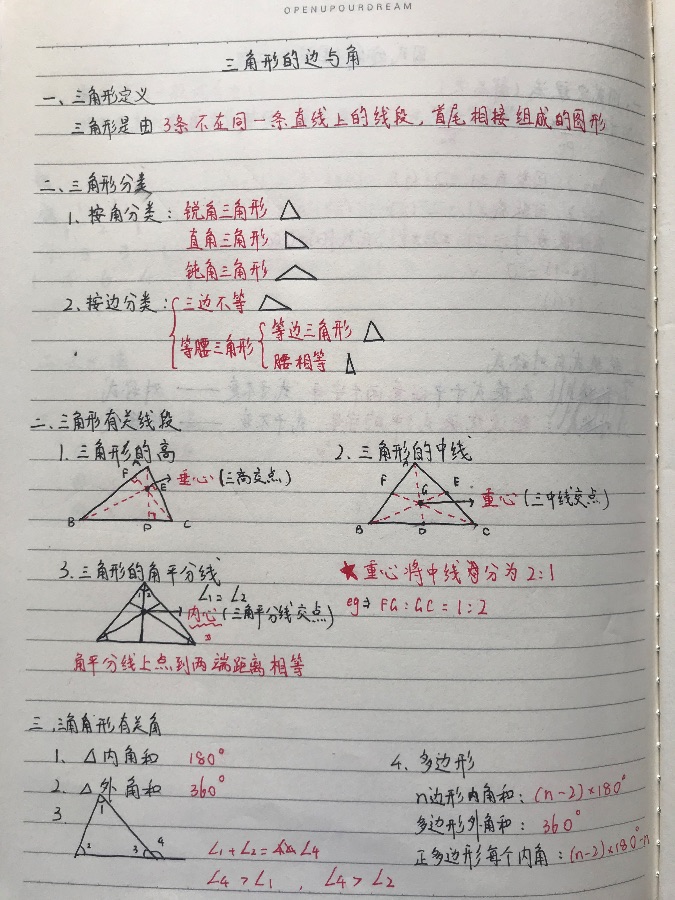 OPENUPOURDREAM
三角形的边与角
一、三角形定义
三角形是由3条不在同一条直线上的线段，首尾相接组成的图形
二、三角形分类
1、按角分类：锐角三角形
直角三角形
钝角三角形
2、按边分类：三边不等
等腰三角形 等边三角形
腰相等
二、三角形有关线段
1、三角形的高
A F E B D C
垂心（三高交点）
2、三角形的中线
A F E G B D C
重心（三中线交点）
3、三角形的角平分线
1 2
∠1=∠2
内心（三角平分线交点）
角平分线上点到两端距离相等
★重心将中线分为2:1
eg⇒ FG:GC=1:2
三、三角形有关角
1、△内角和 180°
2、△外角和 360°
3、
1 2 3 4
∠1+∠2=∠4
∠4>∠1，∠4>∠2
4、多边形
n边形内角和：(n-2)×180°
多边形外角和：360°
正多边形每个内角：(n-2)×180°÷n